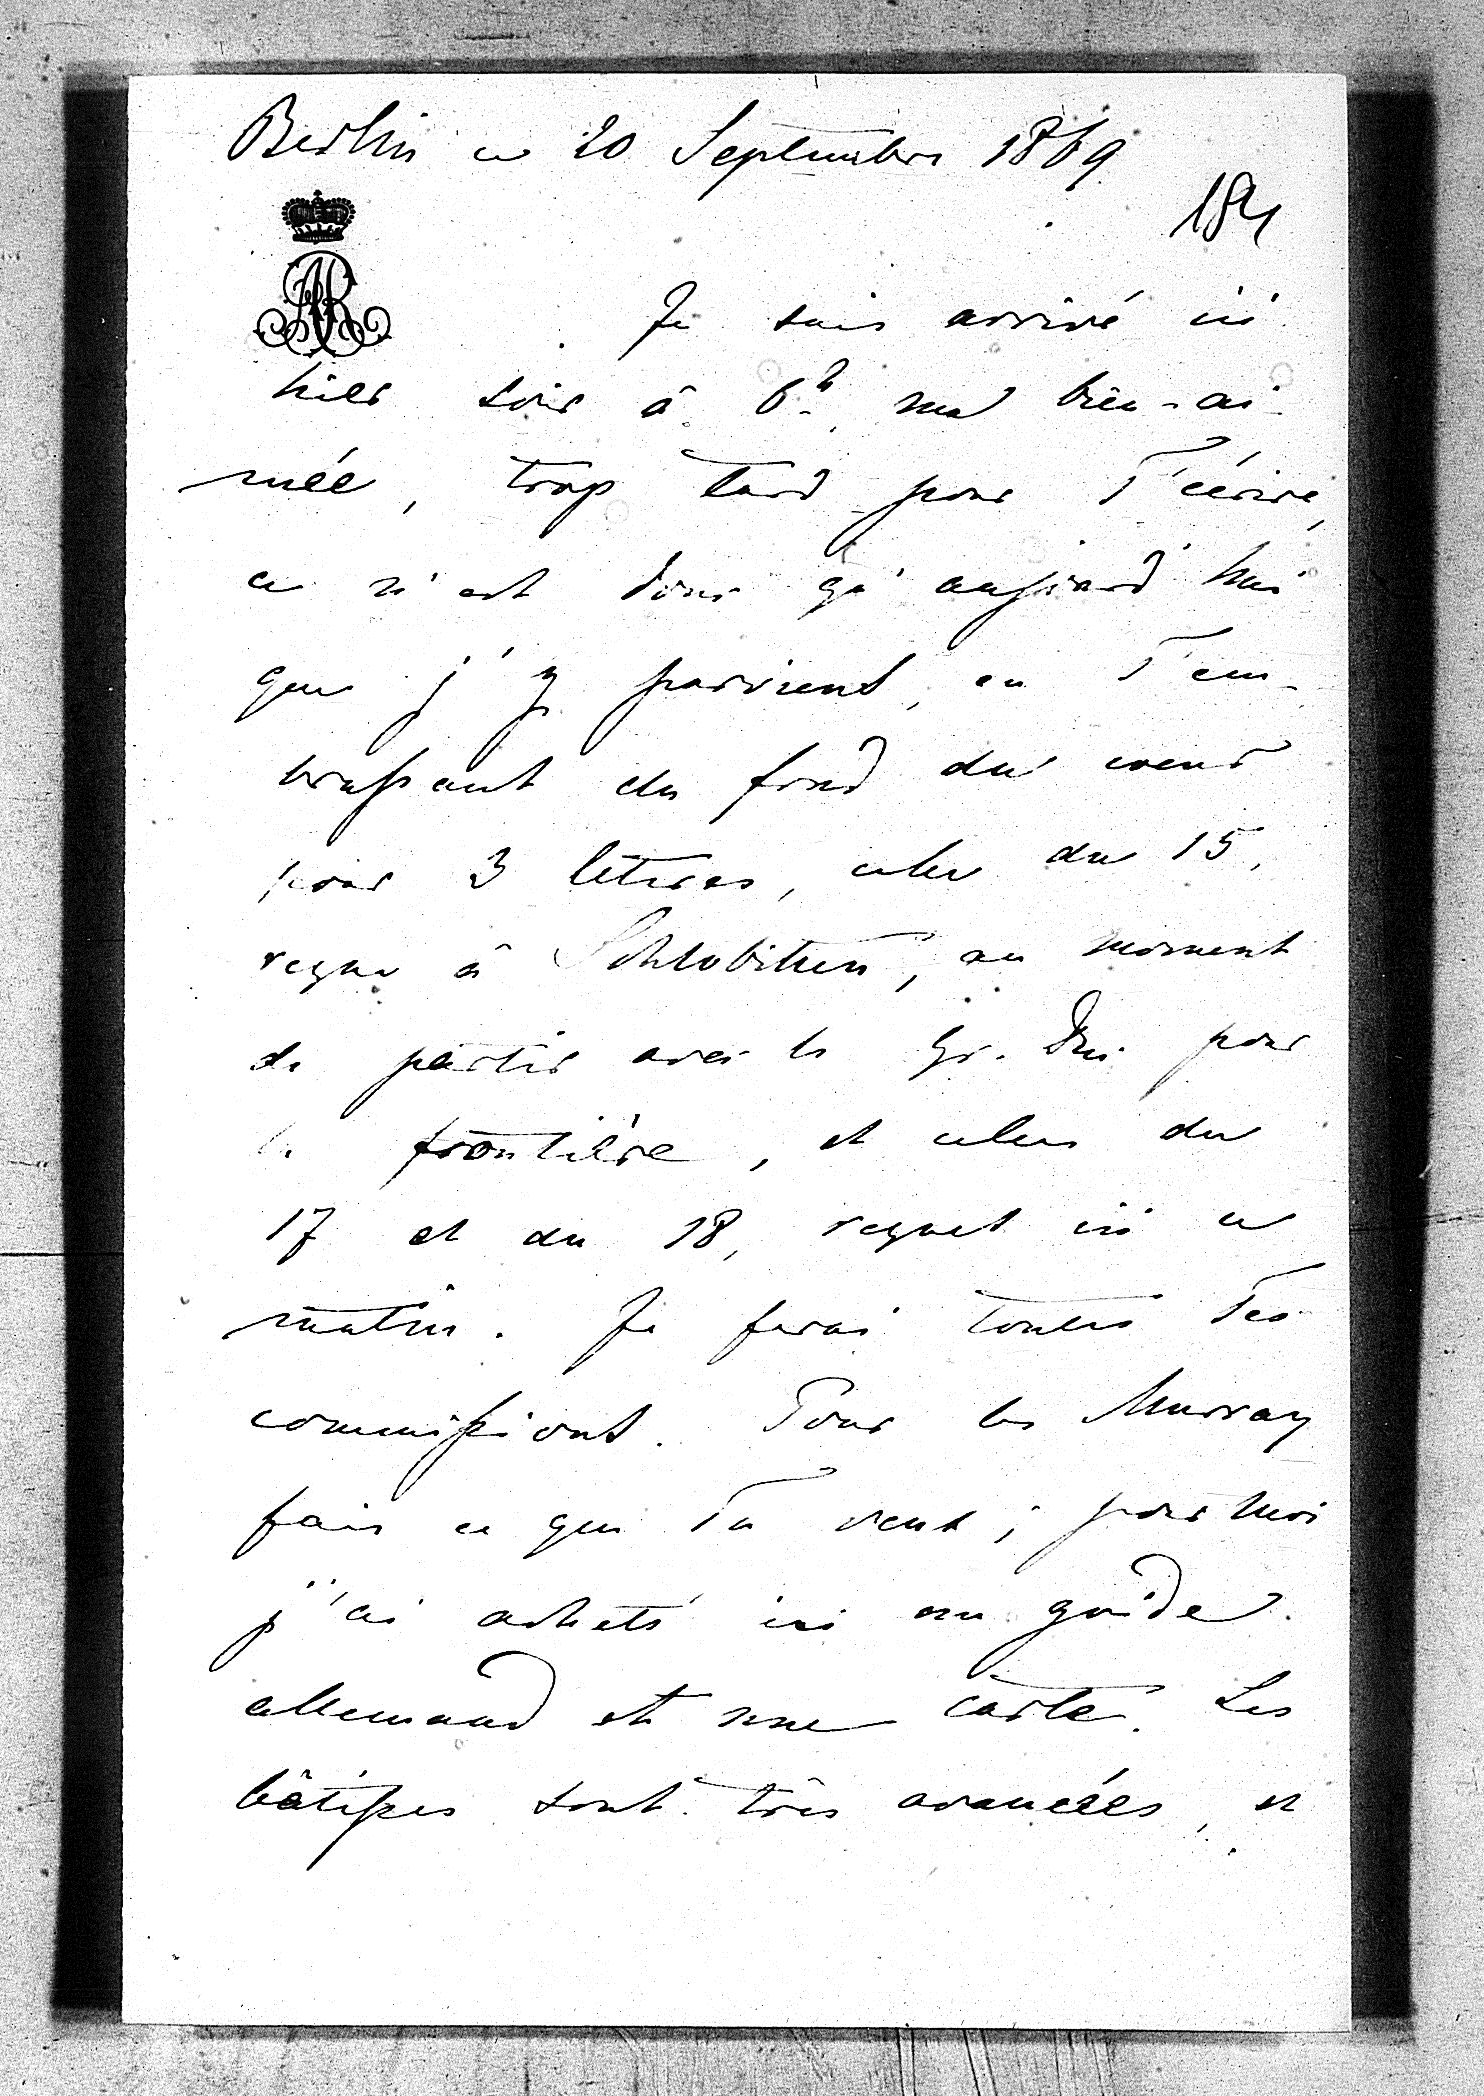 Berlin ce 20 Septembre 1869
184
Je suis arrivé ici
hier soir à 6h. ma bien-ai-
mée, trop tard pour T'écrire,
ce n'est donc qu'aujourd'hui
que j'y parviens, en T'em-
brassant du fond du coeur
pour 3 lettres, celle du 15,
reçue à Schlobitten, au moment
de partir avec le Gr. Duc pour
la frontière, et celles du
17 et du 18, reçues ici ce
matin. Je ferai toutes Tes
commissions. Pour les Murray
fais ce que Tu veux; pour moi
j'ai acheté ici un guide
allemand et une carte. Les
bâtisses sont très avancées, et